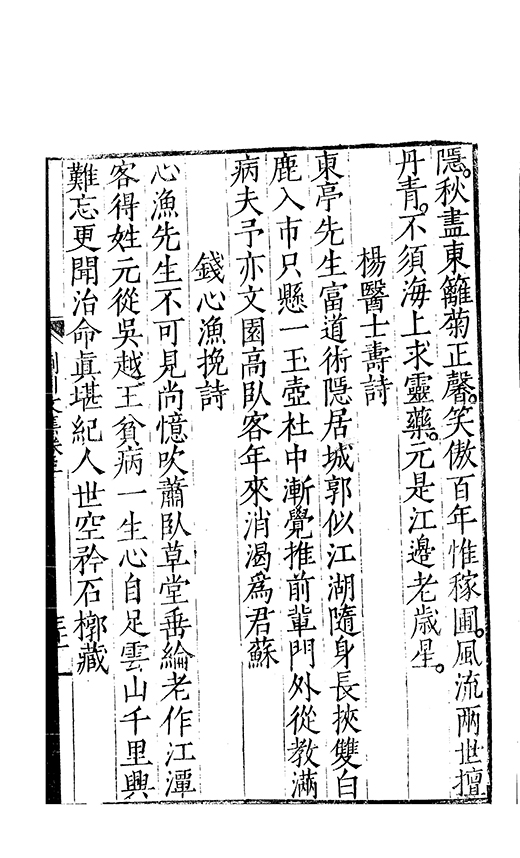 隱。秋盡東籬菊正馨。笑傲百年惟稼圃。風流兩世擅
丹青。不須海上求靈藥。元是江邊老歲星。
楊醫士壽詩
東亭先生富道術隱居城郭似江湖隨身長挾雙白
鹿入市只懸一玉壺杜中漸覺推前輩門外從教滿
病夫予亦文園高臥客年來消渴爲君蘇
錢心漁挽詩
心漁先生不可見尚憶吹蕭臥草堂垂綸老作江潭
客得姓元從吳越王貧病一生心自足雲山千里興
難忘更聞治命眞堪紀人世空矜石槨藏